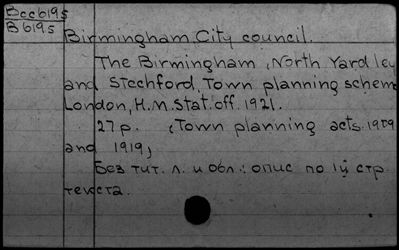 Bccb195
B b195
Birmingham. City council.
The Birmingham, North Yardley
and Stechford. Town planning scheme
London, H.M. Stat. off. 1921.
27 p. (Town planning acts. 1909
and 1919)
Без тит. л. и обл.: опис по 1й стр
текста.